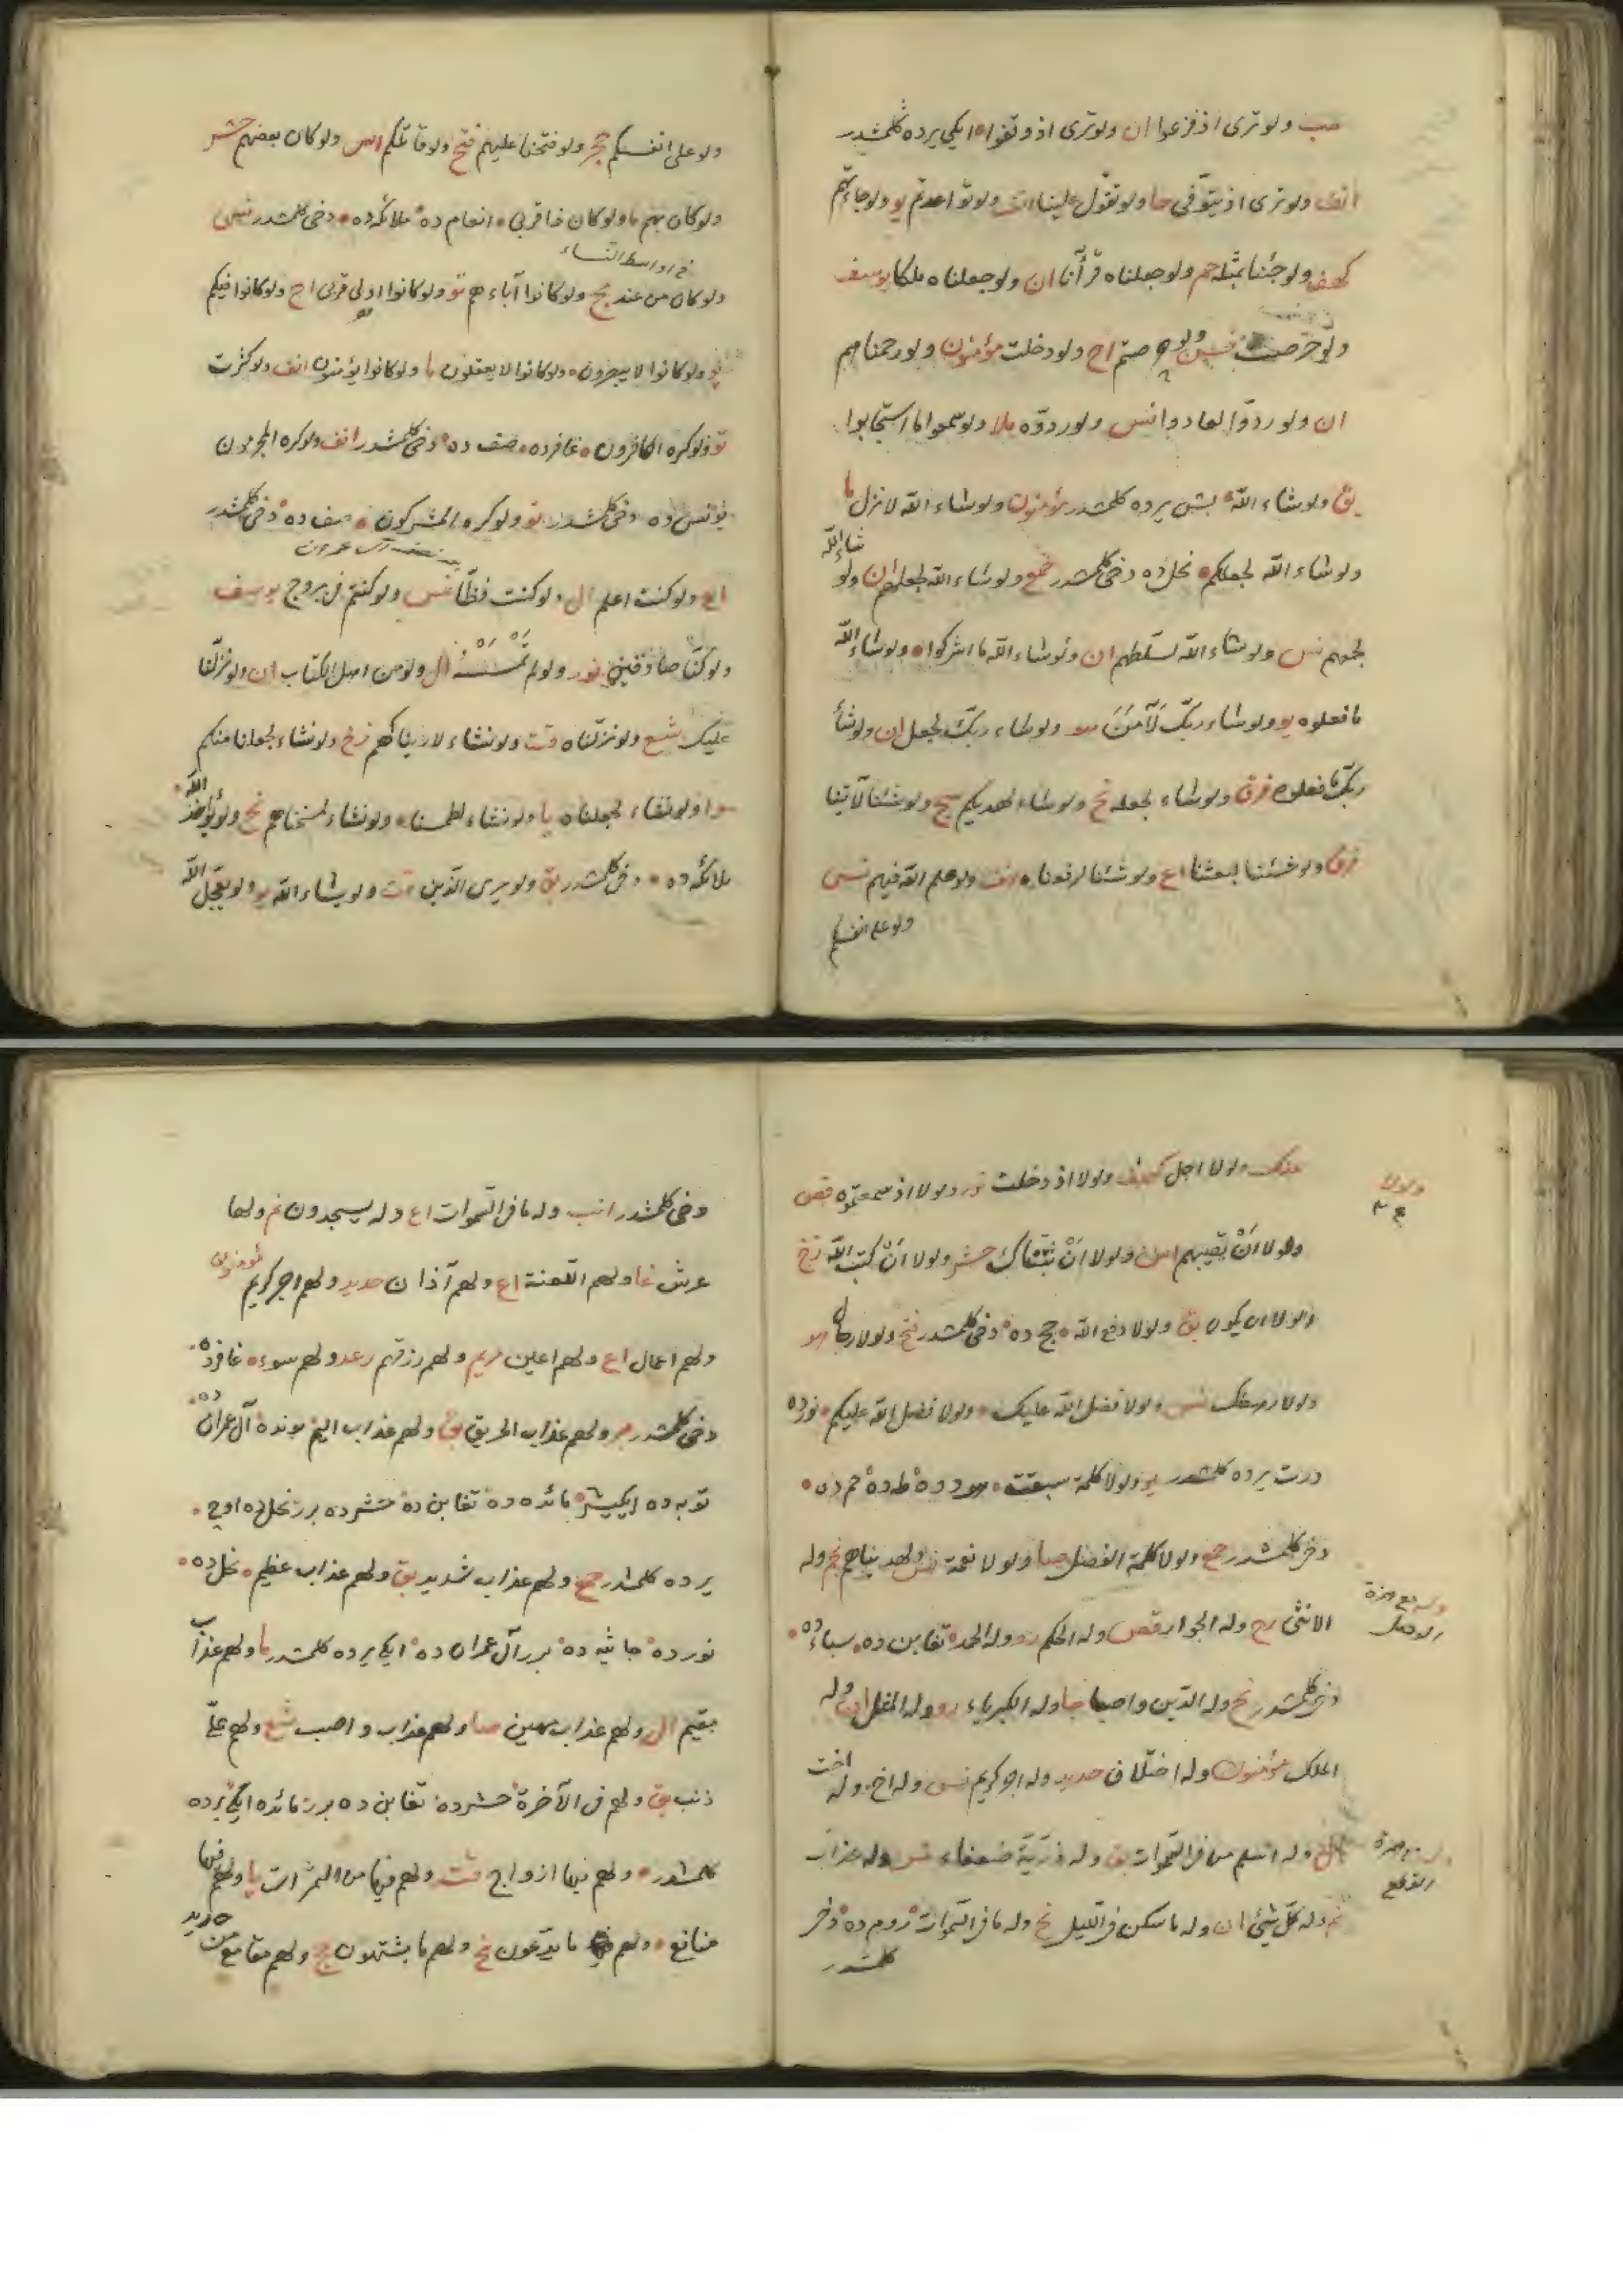 ولو ترى اذ فزعوا ان ولو ترى اذ وقفوا ايكى يرده كلمشدر
انف ولو ترى اذ يتوفى حا ولو تقول علينا ولو تواعدتم يو ولو جاءتهم
كهف ولو جئنا بمثله حم ولو جعلناه قرآنا ان ولو جعلناه ملكا يوسف
ولو حرصت ولو حرصتم اح ولو دخلت مؤمنون ولو رحمناهم
ان ولو ردوا لعادوا نس ولو ردوه ملا ولو سمعوا ما استجابوا
بق ولو شاء الله بش يرده كلمشدر مؤمنون ولو شاء الله لانزل ما
ولو شاء الله لجعلكم نحل ده دخى كلمشدر حمع ولو شاء الله لجعلهم ان ولو شاء الله
لجمعهم نس ولو شاء الله لسلطهم ان ولو شاء الله ما اشركوا ولو شاء الله
ما فعلوه يو ولو شاء ربك لآمن هو ولو شاء ربك لجعل ان ولو شاء
ربك ما فعلوه فرق ولو شاء لجعله نح ولو شاء لهديكم سج ولو شئنا لآتينا
فرق ولو شئنا لبعثنا اع ولو شئنا لرفعناه انف ولو علم الله فيهم نس
ولو على انفسكم
ولو على انفسكم حج ولو فتحنا عليهم فتح ولو قاتلكم اس ولو كان بعضهم حشر
ولو كان بهم ما ولو كان ذا قربى انعام ده ملائكه ده دخى كلمشدر نس
فى اواسط النساء
ولو كان من عند مج ولو كانوا آباءهم تو ولو كانوا اولى قربى اح ولو كانوا فيكم
يو ولو كانوا لا يبصرون ولو كانوا لا يعقلون ما ولو كانوا يؤمنون انف ولو كثرت
تو ولو كره الكافرون غافرده صف ده دخى كلمشدر انف ولو كره المجرمون
يونس ده دخى كلمشدر تو ولو كره المشركون صف ده دخى كلمشدر
اع ولو كنت اعلم ال ولو كنت فظا نس ولو كنتم فى بروج يوسف
ولو كنا صادقين نور ولو لم تمسسه ال ولو من اهل الكتاب ان ولو نزلنا
عليك شع ولو نزلناه قت ولو نشاء لاريناكهم زخ ولو نشاء لجعلنا منكم
ولو نشاء لجعلناه يا ولو نشاء لطمسنا ولو نشاء لمسخناهم نح ولو يؤاخذ الله
ملائكه ده دخى كلمشدر بق ولو يرى الذين قت ولو يشاء الله يو ولو يعجل الله
ولولا
عنك ولولا اجل كهف ولولا اذ دخلت نور ولولا اذ سمعتموه قص
ولولا ان تصيبهم اس ولولا ان ثبتناك حشر ولولا ان كتب الله زخ
ولولا ان يكون بق ولولا دفع الله حج ده دخى كلمشدر فتح ولولا رجال هو
ولولا رهطك نس ولولا فضل الله عليك ولولا فضل الله عليكم نورده
درت يرده كلمشدر يو ولولا كلمة سبقت هود ده طه ده حم ده
دخى كلمشدر جع ولولا كلمة الفصل صا ولولا نعمة نس ولهديناهم نجم وله
الانثى رح وله الجوار قص وله الحكم رو وله الحمد تغابن ده سباء ده
دخى كلمشدر نح وله الدين واصبا جا وله الكبرياء رو وله المثل ان وله
الملك مؤمنون وله اختلاف حديد وله اجر كريم نس وله اخ وله اخت
ال وله اسلم من فى السموات بق وله ذرية ضعفاء نس وله عذاب
نم وله كل شئ ان وله ما سكن فى الليل نح وله ما فى السموات روم ده دخى
كلمشدر
دخى كلمشدر انب وله ما فى السموات اع وله يسجدون نم ولها
عرش غا ولهم اللعنة اع ولهم آذان حديد ولهم اجر كريم مؤمنون
ولهم اعمال اع ولهم اعين مريم ولهم رزقهم رعد ولهم سوء غافرده
دخى كلمشدر بر ولهم عذاب الحريق بق ولهم عذاب اليم بونده آل عمران ده
توبه ده ايكيشر مائده ده تغابن ده حشرده برر نحل ده اوچ
يرده كلمشدر حج ولهم عذاب شديد بق ولهم عذاب عظيم نحل ده
نورده جاثيه ده برر آل عمران ده ايكى يرده كلمشدر ما ولهم عذاب
مقيم ال ولهم عذاب مهين صا ولهم عذاب واصب شع ولهم على
ذنب بق ولهم فى الآخرة حشرده تغابن ده برر مائده ايكى يرده
كلمشدر ولهم فيها ازواج قت ولهم فيها من الثمرات يا ولهم فيها
منافع ولهم ما يدعون نح ولهم ما يشتهون حج ولهم مقامع من حديد